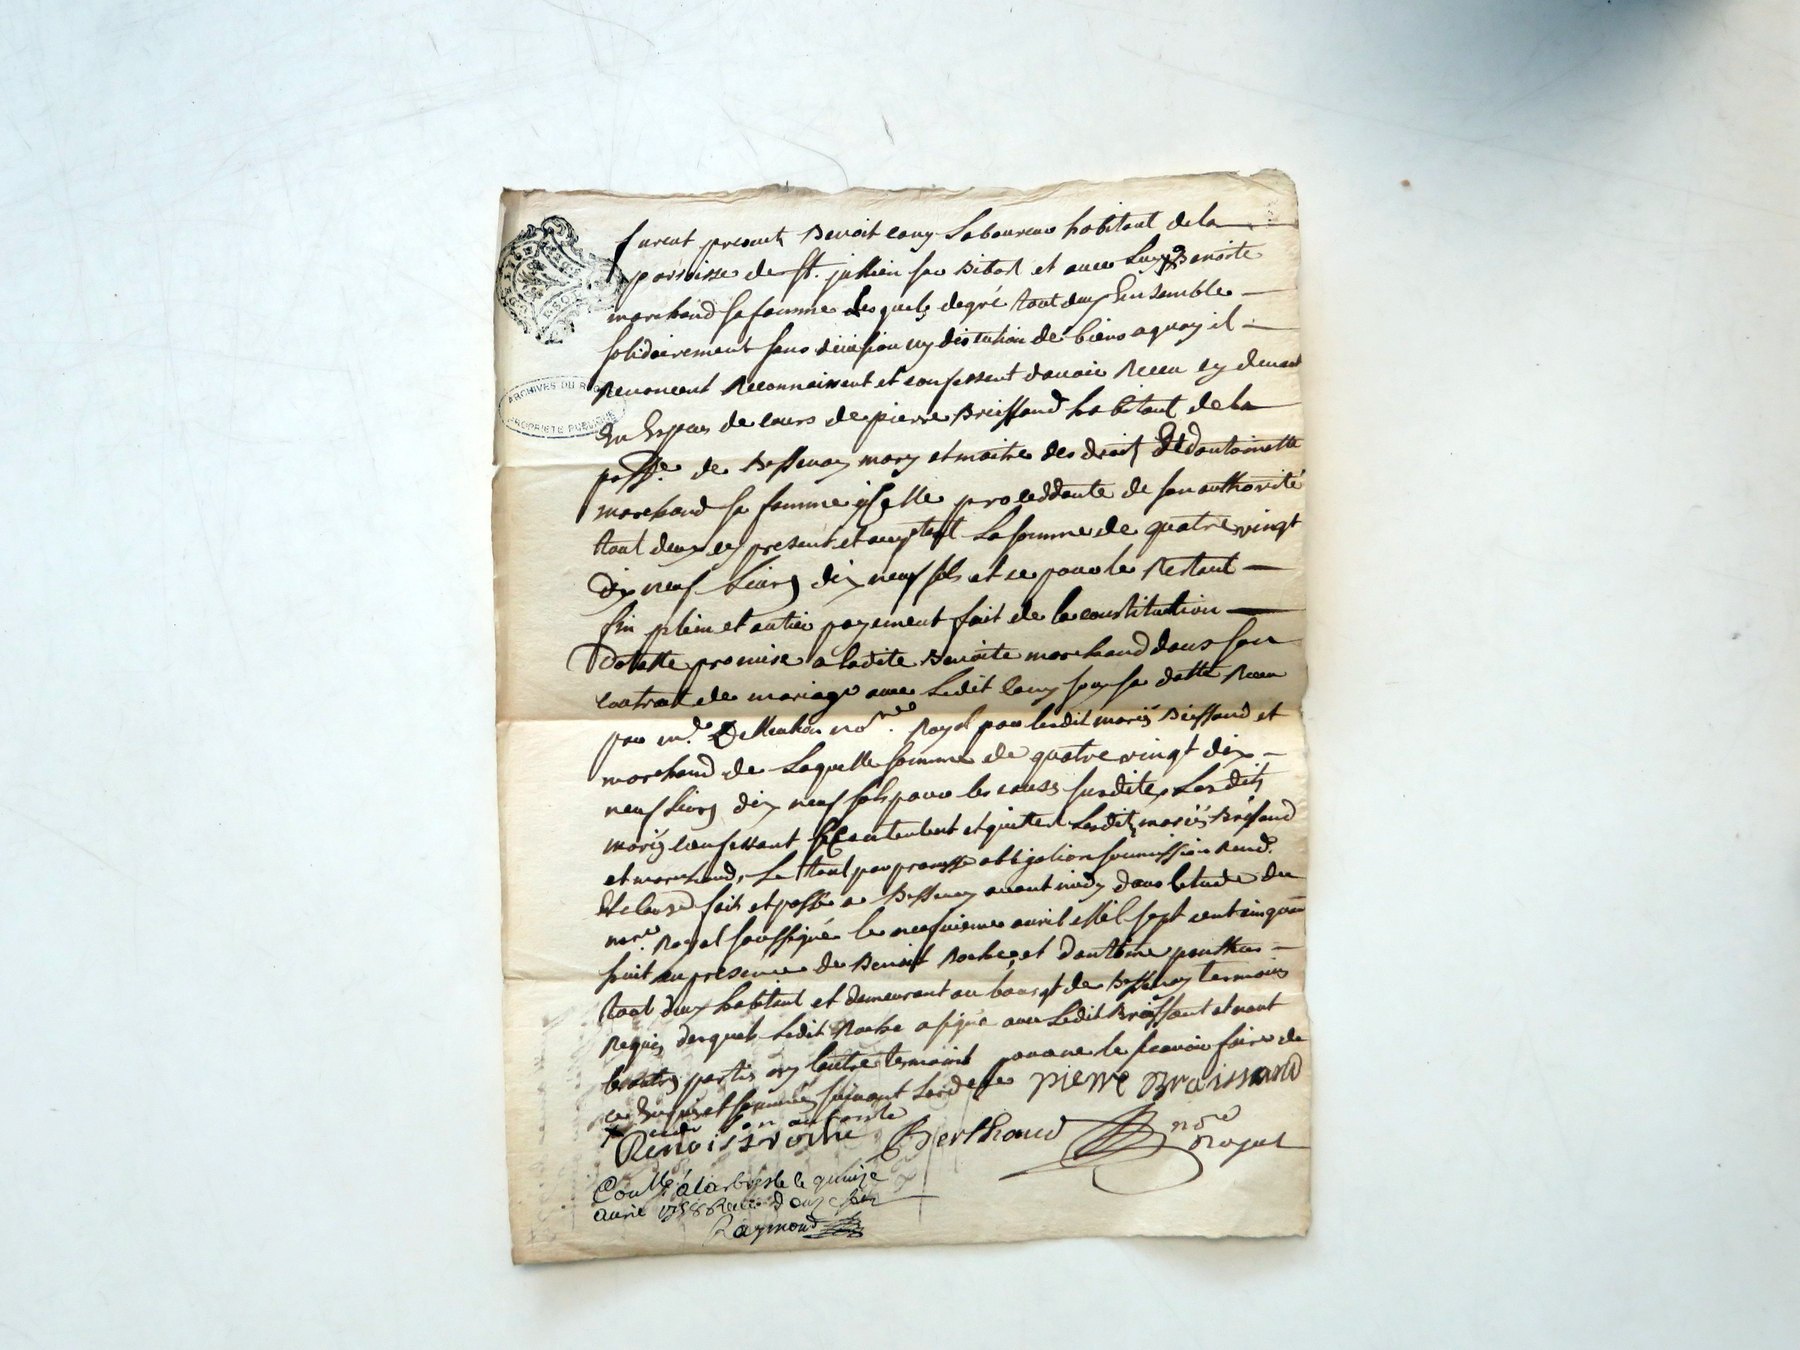 furent presents Benoit Cony Laboureur habitant de la
paroisse de St. jullien sur Bibost et avec Luy Benoite
marchand sa femme Lesquels de gré tout deux Ensemble
solidairement sans division ny distution de biens a quoy il
Renoncent Reconnaissent et confessent d'avoir Receu cy devant
En Espesse de cours de pierre Braissand habitant de la
passe. de Bessenay mary et maitre des droits Et d'antoinette
marchand sa femme icelle proceddante de son authorité
tout deux cy present et acceptant La somme de quatre vingt
Dix neuf Livres dix neuf sols et ce pour le Restant
fin plein et entier payement fait de la constitution
Dotalle promise a ladite Benoite marchand dans son
contrat de mariage avec Ledit Cony sous sa datte Receu
par me. nore. Royal par lesdit mariés Braissand et
marchand de Laquelle somme de quatre vingt dix
neuf Livres dix neuf sols pour les causes susdites Lesdits
mariés Confessent se contentent et quittent Lesdits mariés Braissand
et marchand, Le tout par promesse obligation soumission Rend.
Et clause fait et passé a Bessenay avant midy dans l'etude du
nore. Royal soussigné le neufvieme avril Mil sept cent cinquante
huit en presence de Benoit Roche, et d'antoine ponthus
tout deux habitant et demeurant au bourgt de Bessenay temoins
Requis desquels Ledit Roche a signé avec Ledit Braissant et nont
les autres parties ny l'autre temoint pour ne le scavoir faire de
ce Enquis et sommés suivant Lordce pierre Braissand
Benoist roche Berthaud nore Royal
Conllé a larbresle le quinze
avril 1758 Receu douze sols
Raymond
ARCHIVES DU RHÔNE
PROPRIÉTÉ PUBLIQUE